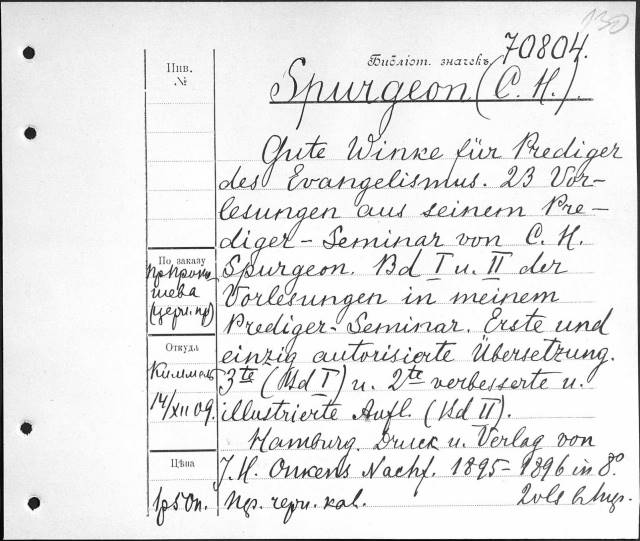 130
Инв. №
Библіот. значекъ 70804.
Spurgeon (C. H.).
Gute Winke für Prediger
des Evangelismus. 23 Vor-
lesungen aus seinem Pre-
diger-Seminar von C. H.
Spurgeon. Bd I u. II der
Vorlesungen in meinem
Prediger-Seminar. Erste und
einzig autorisierte Übersetzung.
3te (Bd I) u. 2te verbesserte u.
illustrierte Aufl. (Bd II).
Hamburg. Druck u. Verlag von
J. H. Onkens Nachf. 1895-1896 in 8°
2 vls
По заказу
Откуда
Киммель
14/XII 09.
Цѣна
1р50п.